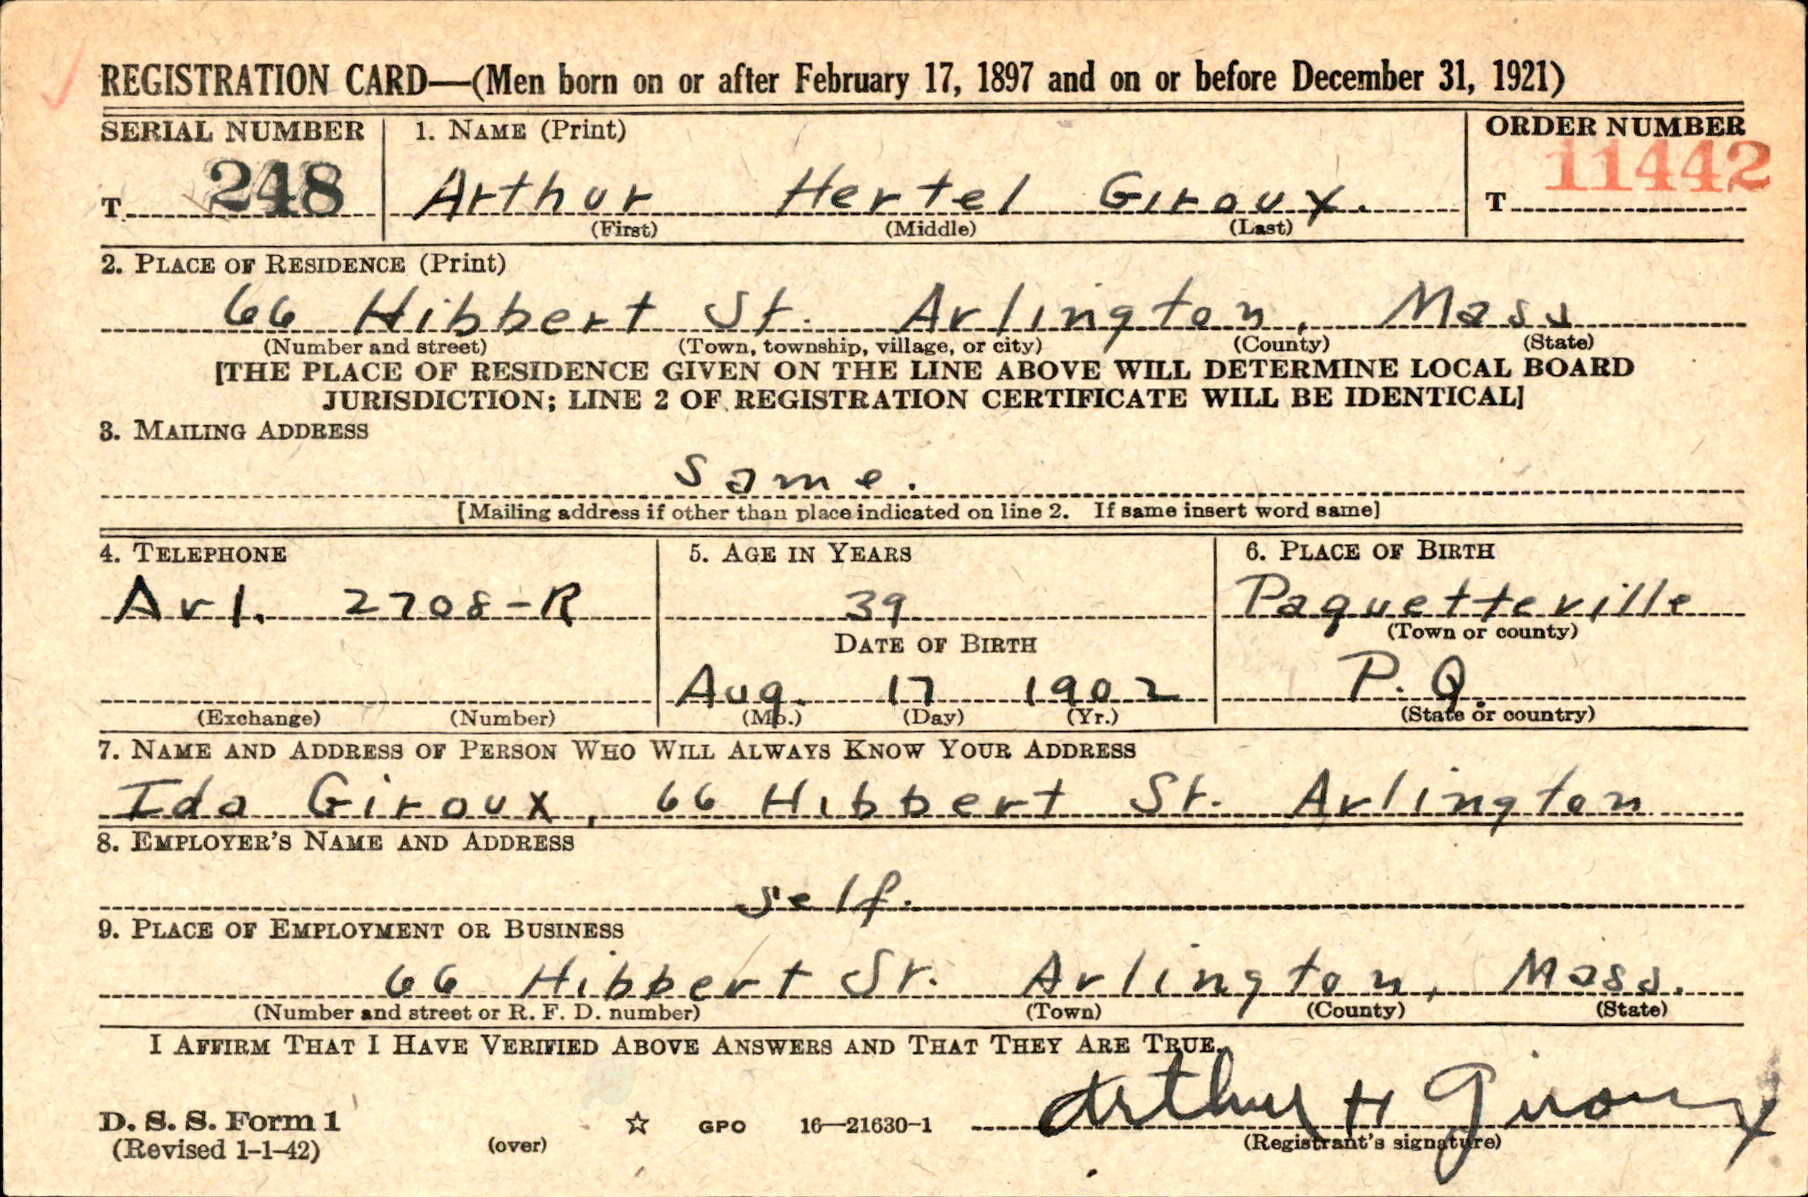 REGISTRATION CARD—(Men born on or after February 17, 1897 and on or before December 31, 1921)
SERIAL NUMBER 1. NAME (Print) ORDER NUMBER
T 248 Arthur Hertel Giroux. T 11442
(First) (Middle) (Last)
2. PLACE OF RESIDENCE (Print)
66 Hibbert St. Arlington, Mass
(Number and street) (Town, township, village, or city) (County) (State)
[THE PLACE OF RESIDENCE GIVEN ON THE LINE ABOVE WILL DETERMINE LOCAL BOARD
JURISDICTION; LINE 2 OF REGISTRATION CERTIFICATE WILL BE IDENTICAL]
3. MAILING ADDRESS
Same.
[Mailing address if other than place indicated on line 2. If same insert word same]
4. TELEPHONE 5. AGE IN YEARS 6. PLACE OF BIRTH
Arl. 2708-R 39 Paquetteville
(Town or county)
DATE OF BIRTH
Aug. 17 1902 P. Q.
(Exchange) (Number) (Mo.) (Day) (Yr.) (State or country)
7. NAME AND ADDRESS OF PERSON WHO WILL ALWAYS KNOW YOUR ADDRESS
Ida Giroux, 66 Hibbert St. Arlington
8. EMPLOYER'S NAME AND ADDRESS
self.
9. PLACE OF EMPLOYMENT OR BUSINESS
66 Hibbert St. Arlington, Mass.
(Number and street or R. F. D. number) (Town) (County) (State)
I AFFIRM THAT I HAVE VERIFIED ABOVE ANSWERS AND THAT THEY ARE TRUE.
Arthur H Giroux
D. S. S. Form 1
(Revised 1-1-42) (over) GPO 16—21630-1 (Registrant's signature)